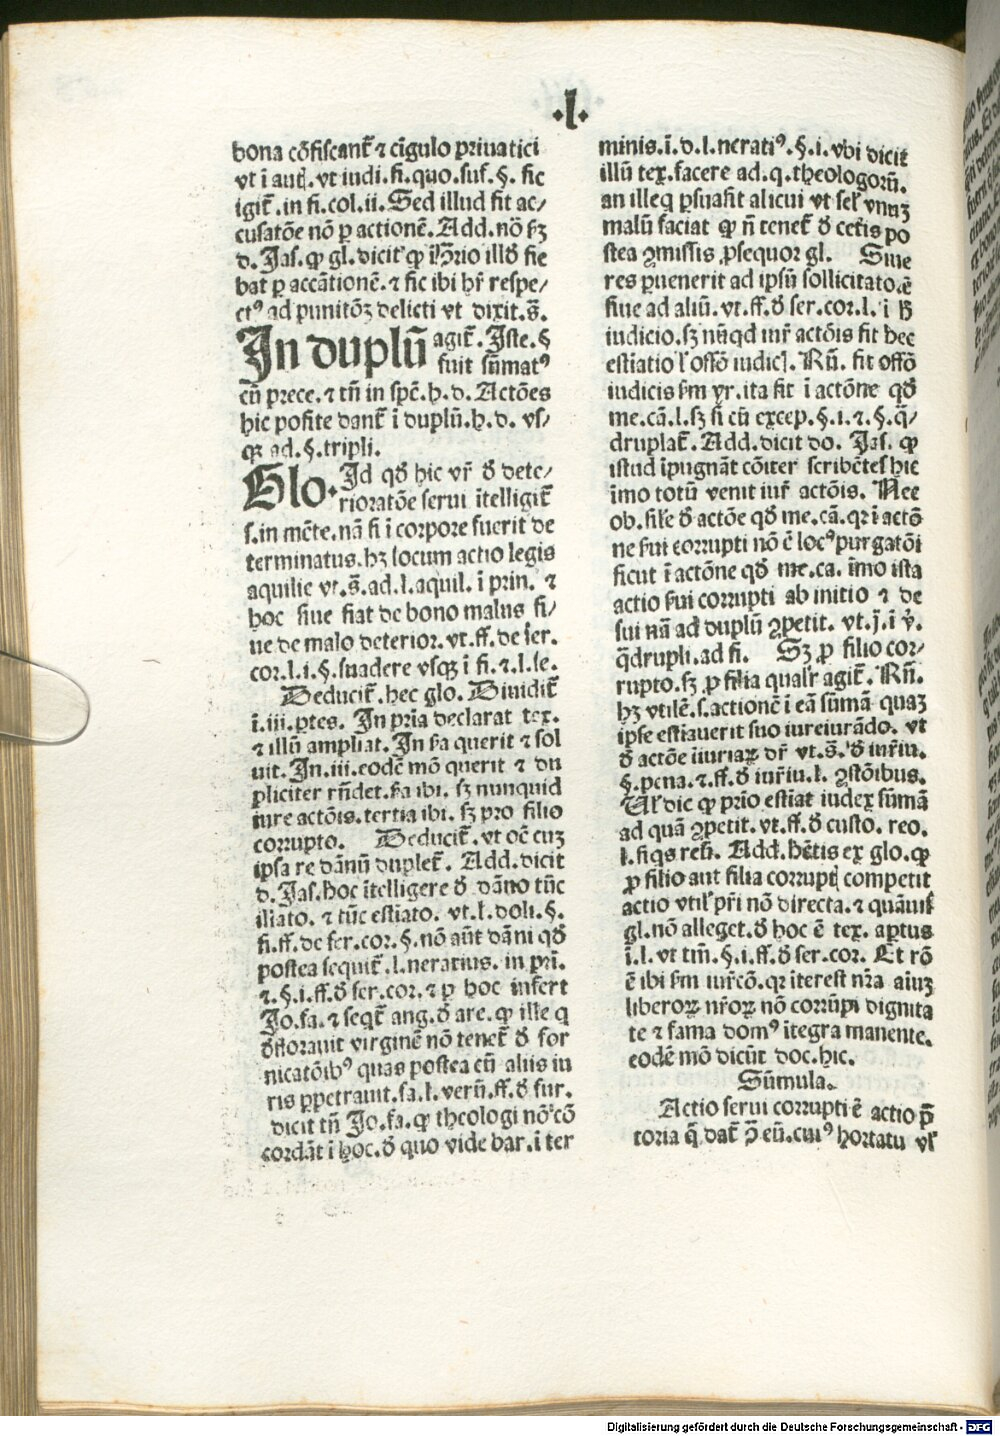 ·l·
bona cõfiscant᷑ ⁊ cĩgulo priuatici
vt ĩ aut̃. vt iudi. ſi. quo. ſuf. §. ſic
igit᷑. in fi. col. ii. Sed illud fit ac/
cuſatõe nõ ꝑ actionẽ. Add. nõ ſꝫ
d. Jaſ. ꝙ gl. dicit ꝙ ille
bat ꝑ accãtionẽ. ⁊ ſic ibi hr̃ reſpe/
ctꝰ ad punitõꝫ delicti vt dixit. s̃.
In duplũ agit᷑. Iſte. §
fuit ſũmatꝰ
cũ prece. ⁊ tñ in ſpẽ. h. d. Actões
hic poſite dant᷑ ĩ duplũ. h. d. vſ/
qꝫ ad. §. tripli.
Glo. Id qđ hic vr̃ đ dete/
rioratõe ſerui ĩtelligit᷑
ſ. in mẽte. nã ſi ĩ corpore fuerit de
terminatus. hꝫ locum actio legis
aquilie vt. s̃. ad. l. aquil. ĩ prin. ⁊
hoc ſiue fiat de bono malus ſi/
ue de malo deterior. vt. ff. de ſer.
cor. l. i. §. ſuadere vſqꝫ ĩ fi. ⁊. l. ſe.
Deducit᷑. hec glo. Diuidit᷑
ĩ. iii. ꝑtes. In pria declarat tex.
⁊ illũ ampliat. In ẜa querit ⁊ ſol
uit. In. iii. eodẽ mõ querit ⁊ du
pliciter rñdet. ẜa ibi. ſꝫ nunquid
iure actõis. tertia ibi. ſꝫ pro filio
corrupto. Deducit᷑. vt oẽ cuꝫ
ipſa re dãnũ duplet᷑. Add. dicit
d. Jaſ. hoc ĩtelligere đ dãno tũc
illato. ⁊ tũc eſtĩato. vt. l. doli. §.
fi. ff. de ſer. cor. §. nõ aũt dãni qđ
poſtea ſequit᷑. l. neratius. in pri.
⁊. §. i. ff. đ ſer. cor. ⁊ ꝑ hoc infert
Jo. fa. ⁊ ſeqt᷑ ang. đ are. ꝙ ille q
đflorauit virginẽ nõ tenet᷑ đ for
nicatõibꝰ quas poſtea cũ aliis iu
ris ꝑpetrauit. fa. l. verũ. ff. đ fur.
dicit tñ Jo. fa. ꝙ theologi nõ cõ
cordãt ĩ hoc. đ quo vide bar. ĩ ter
minis. ĩ. d. l. neratiꝰ. §. i. vbi dicit
illũ tex. facere ad. q. theologoꝝ.
an illeq ꝑſuaſit alicui vt ſel
malũ faciat ꝙ ñ tenet᷑ đ cet̃is po
ſtea ꝯmiſſis ꝓſequor gl. Siue
res ꝑuenerit ad ipſũ ſollicitatoẽ
ſiue ad aliũ. vt. ff. đ ſer. cor. l. i
iudicio. ſꝫ nũqd iur̃ actõis fit hec
eſtiatio l̃ offõ iudic̃. Rñ. fit offõ
iudicis ẜm yr. ita fit ĩ actõne qđ
me. cã. l. ſꝫ ſi cũ excep. §. i. ⁊. §. q̃/
druplat᷑. Add. dicit do. Jaſ. ꝙ
iſtud ĩpugnãt cõiter ſcribẽtes hic
ĩmo totũ venit iur̃ actõis. Nec
ob. ſil̃e đ actõe qđ me. cã. qr ĩ actõ
ne ẜui corrupti nõ ẽ locꝰ purgatõi
ſicut ĩ actõne qđ me. ca. ĩmo iſta
actio ẜui corrupti ab initio ⁊ de
ſui nã ad duplũ ꝯpetit. vt. j̃. ĩ ꝟ.
q̃drupli. ad fi. Sꝫ ꝓ filio cor/
rupto. ſꝫ ꝓ filia qualr̃ agit᷑. Rñ.
hꝫ vtilẽ. ſ. actionẽ ĩ eã ſũmã quaꝫ
ipſe eſtiauerit ſuo iureiurãdo. vt
đ actõe iĩuriaꝝ dr̃ vt. s̃. đ inr̃iu.
§. pena. ⁊. ff. đ iur̃iu. l. ꝯſtõibus.
Vl̃ dic ꝙ prio eſtiat iudex ſũmã
ad quã ꝯpetit. vt. ff. đ cuſto. reo.
l. ſiqs reũ. Add. hẽtis ex glo. ꝙ
ꝓ filio aut filia corrupt̃ competit
actio vtil̃ pr̃i nõ directa. ⁊ quãuis̃
gl. nõ alleget. đ hoc ẽ tex. aꝑtus
ĩ. l. vt tm̃. §. i. ff. đ ſer. cor. Et rõ
ẽ ibi ẜm iur̃cõ. qr ĩtereſt nr̃a aĩuꝫ
liberoꝝ nr̃oꝝ nõ corrũpi dignita
te ⁊ fama domꝰ ĩtegra manente.
eodẽ mõ dicũt doc. hic.
Sũmula.
Actio ſerui corrupti ẽ actio p̃
toria q̃ dat᷑ ꝯ̃ eũ. cuiꝰ hortatu vl̃
Digitalisierung gefördert durch die Deutsche Forschungsgemeinschaft - DFG